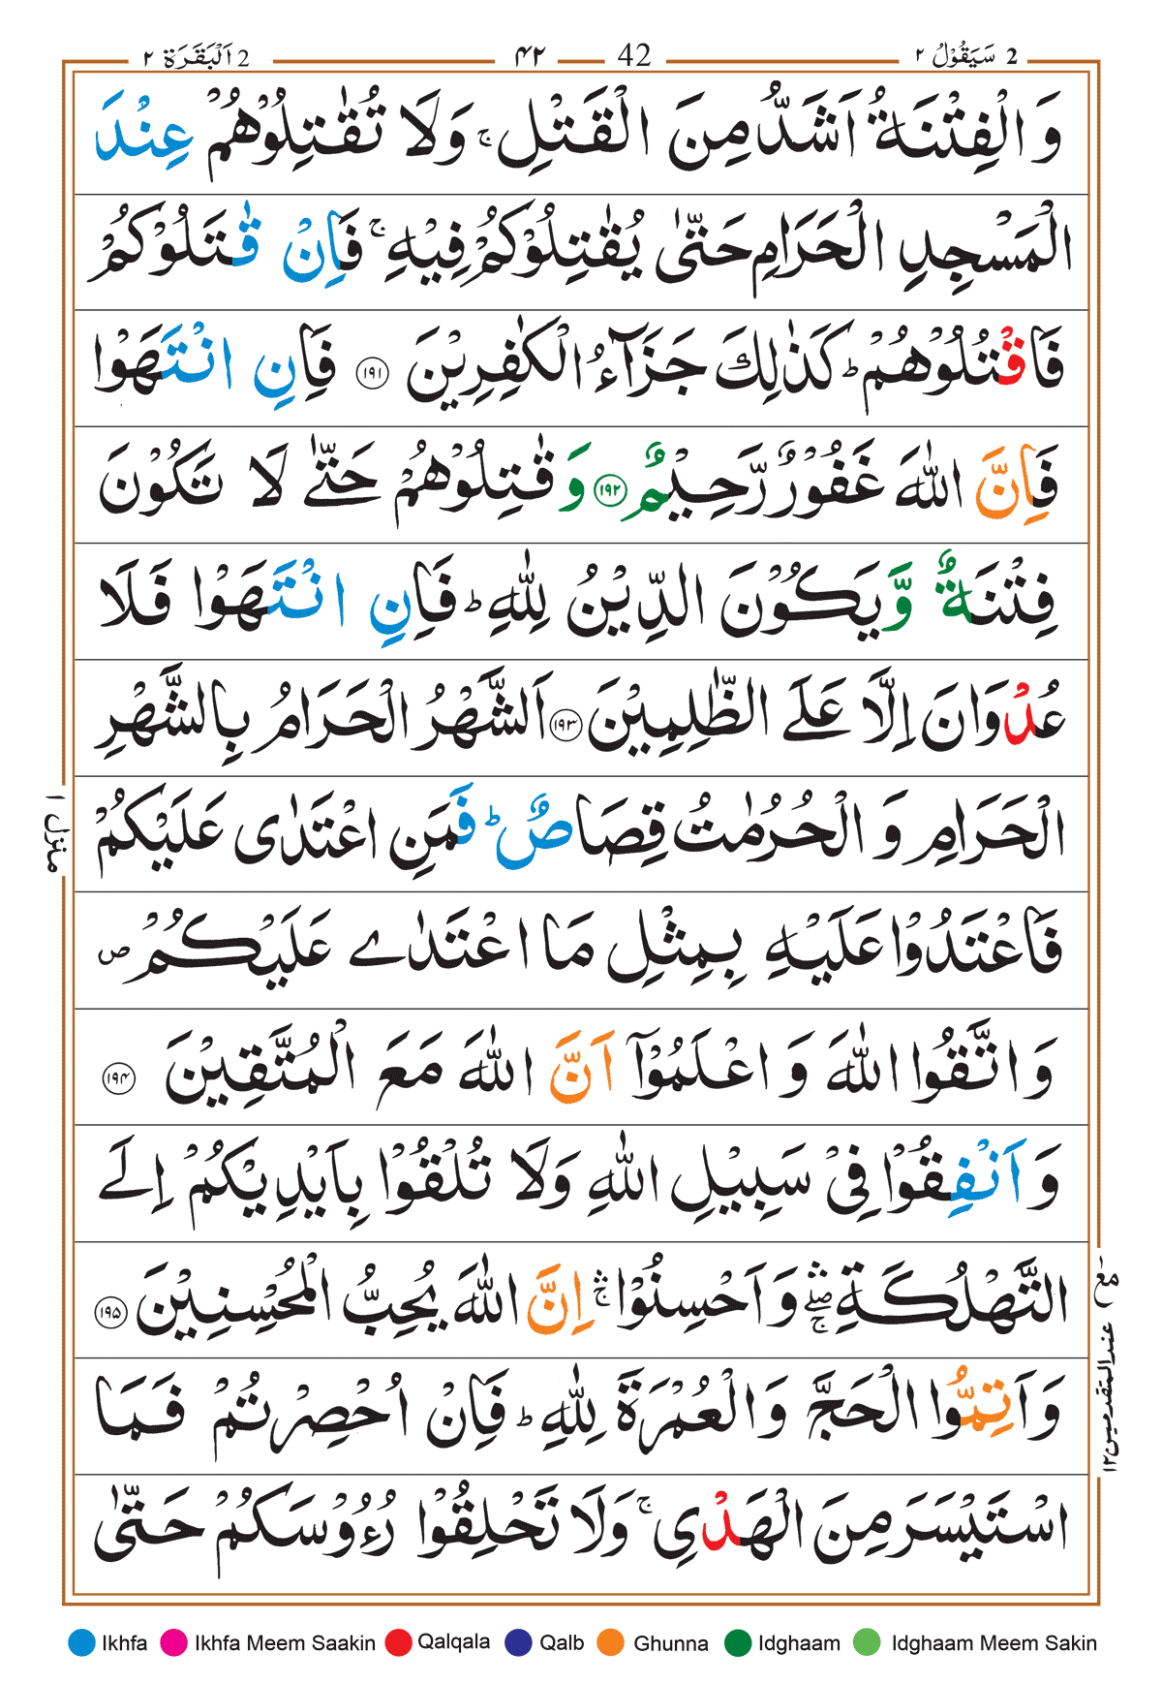 2 سَيَقُوْلُ ٢
42
۴۲
2 اَلْبَقَرَة ٢
وَ الْفِتْنَةُ اَشَدُّ مِنَ الْقَتْلِ ۚ وَلَا تُقٰتِلُوْهُمْ عِنْدَ
الْمَسْجِدِ الْحَرَامِ حَتّٰى يُقٰتِلُوْكُمْ فِيْهِ ۚ فَاِنْ قٰتَلُوْكُمْ
فَاقْتُلُوْهُمْ ؕ كَذٰلِكَ جَزَآءُ الْكٰفِرِيْنَ ۱۹۱ فَاِنِ انْتَهَوْا
فَاِنَّ اللّٰهَ غَفُوْرٌ رَّحِيْمٌ ۱۹۲ وَ قٰتِلُوْهُمْ حَتّٰے لَا تَكُوْنَ
فِتْنَةٌ وَّ يَكُوْنَ الدِّيْنُ لِلّٰهِ ؕ فَاِنِ انْتَهَوْا فَلَا
عُدْوَانَ اِلَّا عَلَے الظّٰلِمِيْنَ ۱۹۳ اَلشَّهْرُ الْحَرَامُ بِالشَّهْرِ
الْحَرَامِ وَ الْحُرُمٰتُ قِصَاصٌ ؕ فَمَنِ اعْتَدٰى عَلَيْكُمْ
فَاعْتَدُوْا عَلَيْهِ بِمِثْلِ مَا اعْتَدٰے عَلَيْكُمْ ص
وَ اتَّقُوا اللّٰهَ وَ اعْلَمُوْٓا اَنَّ اللّٰهَ مَعَ الْمُتَّقِيْنَ ۱۹۴
وَ اَنْفِقُوْا فِيْ سَبِيْلِ اللّٰهِ وَلَا تُلْقُوْا بِاَيْدِيْكُمْ اِلَے
التَّهْلُكَةِ ۛۖۚ وَ اَحْسِنُوْا ۛۚ اِنَّ اللّٰهَ يُحِبُّ الْمُحْسِنِيْنَ ۱۹۵
وَ اَتِمُّوا الْحَجَّ وَ الْعُمْرَةَ لِلّٰهِ ؕ فَاِنْ اُحْصِرْتُمْ فَمَا
اسْتَيْسَرَ مِنَ الْهَدْيِ ۚ وَلَا تَحْلِقُوْا رُءُوْسَكُمْ حَتّٰى
منزل ۱
مع
عند المتقدمين ۱۲
Ikhfa Ikhfa Meem Saakin Qalqala Qalb Ghunna Idghaam Idghaam Meem Sakin